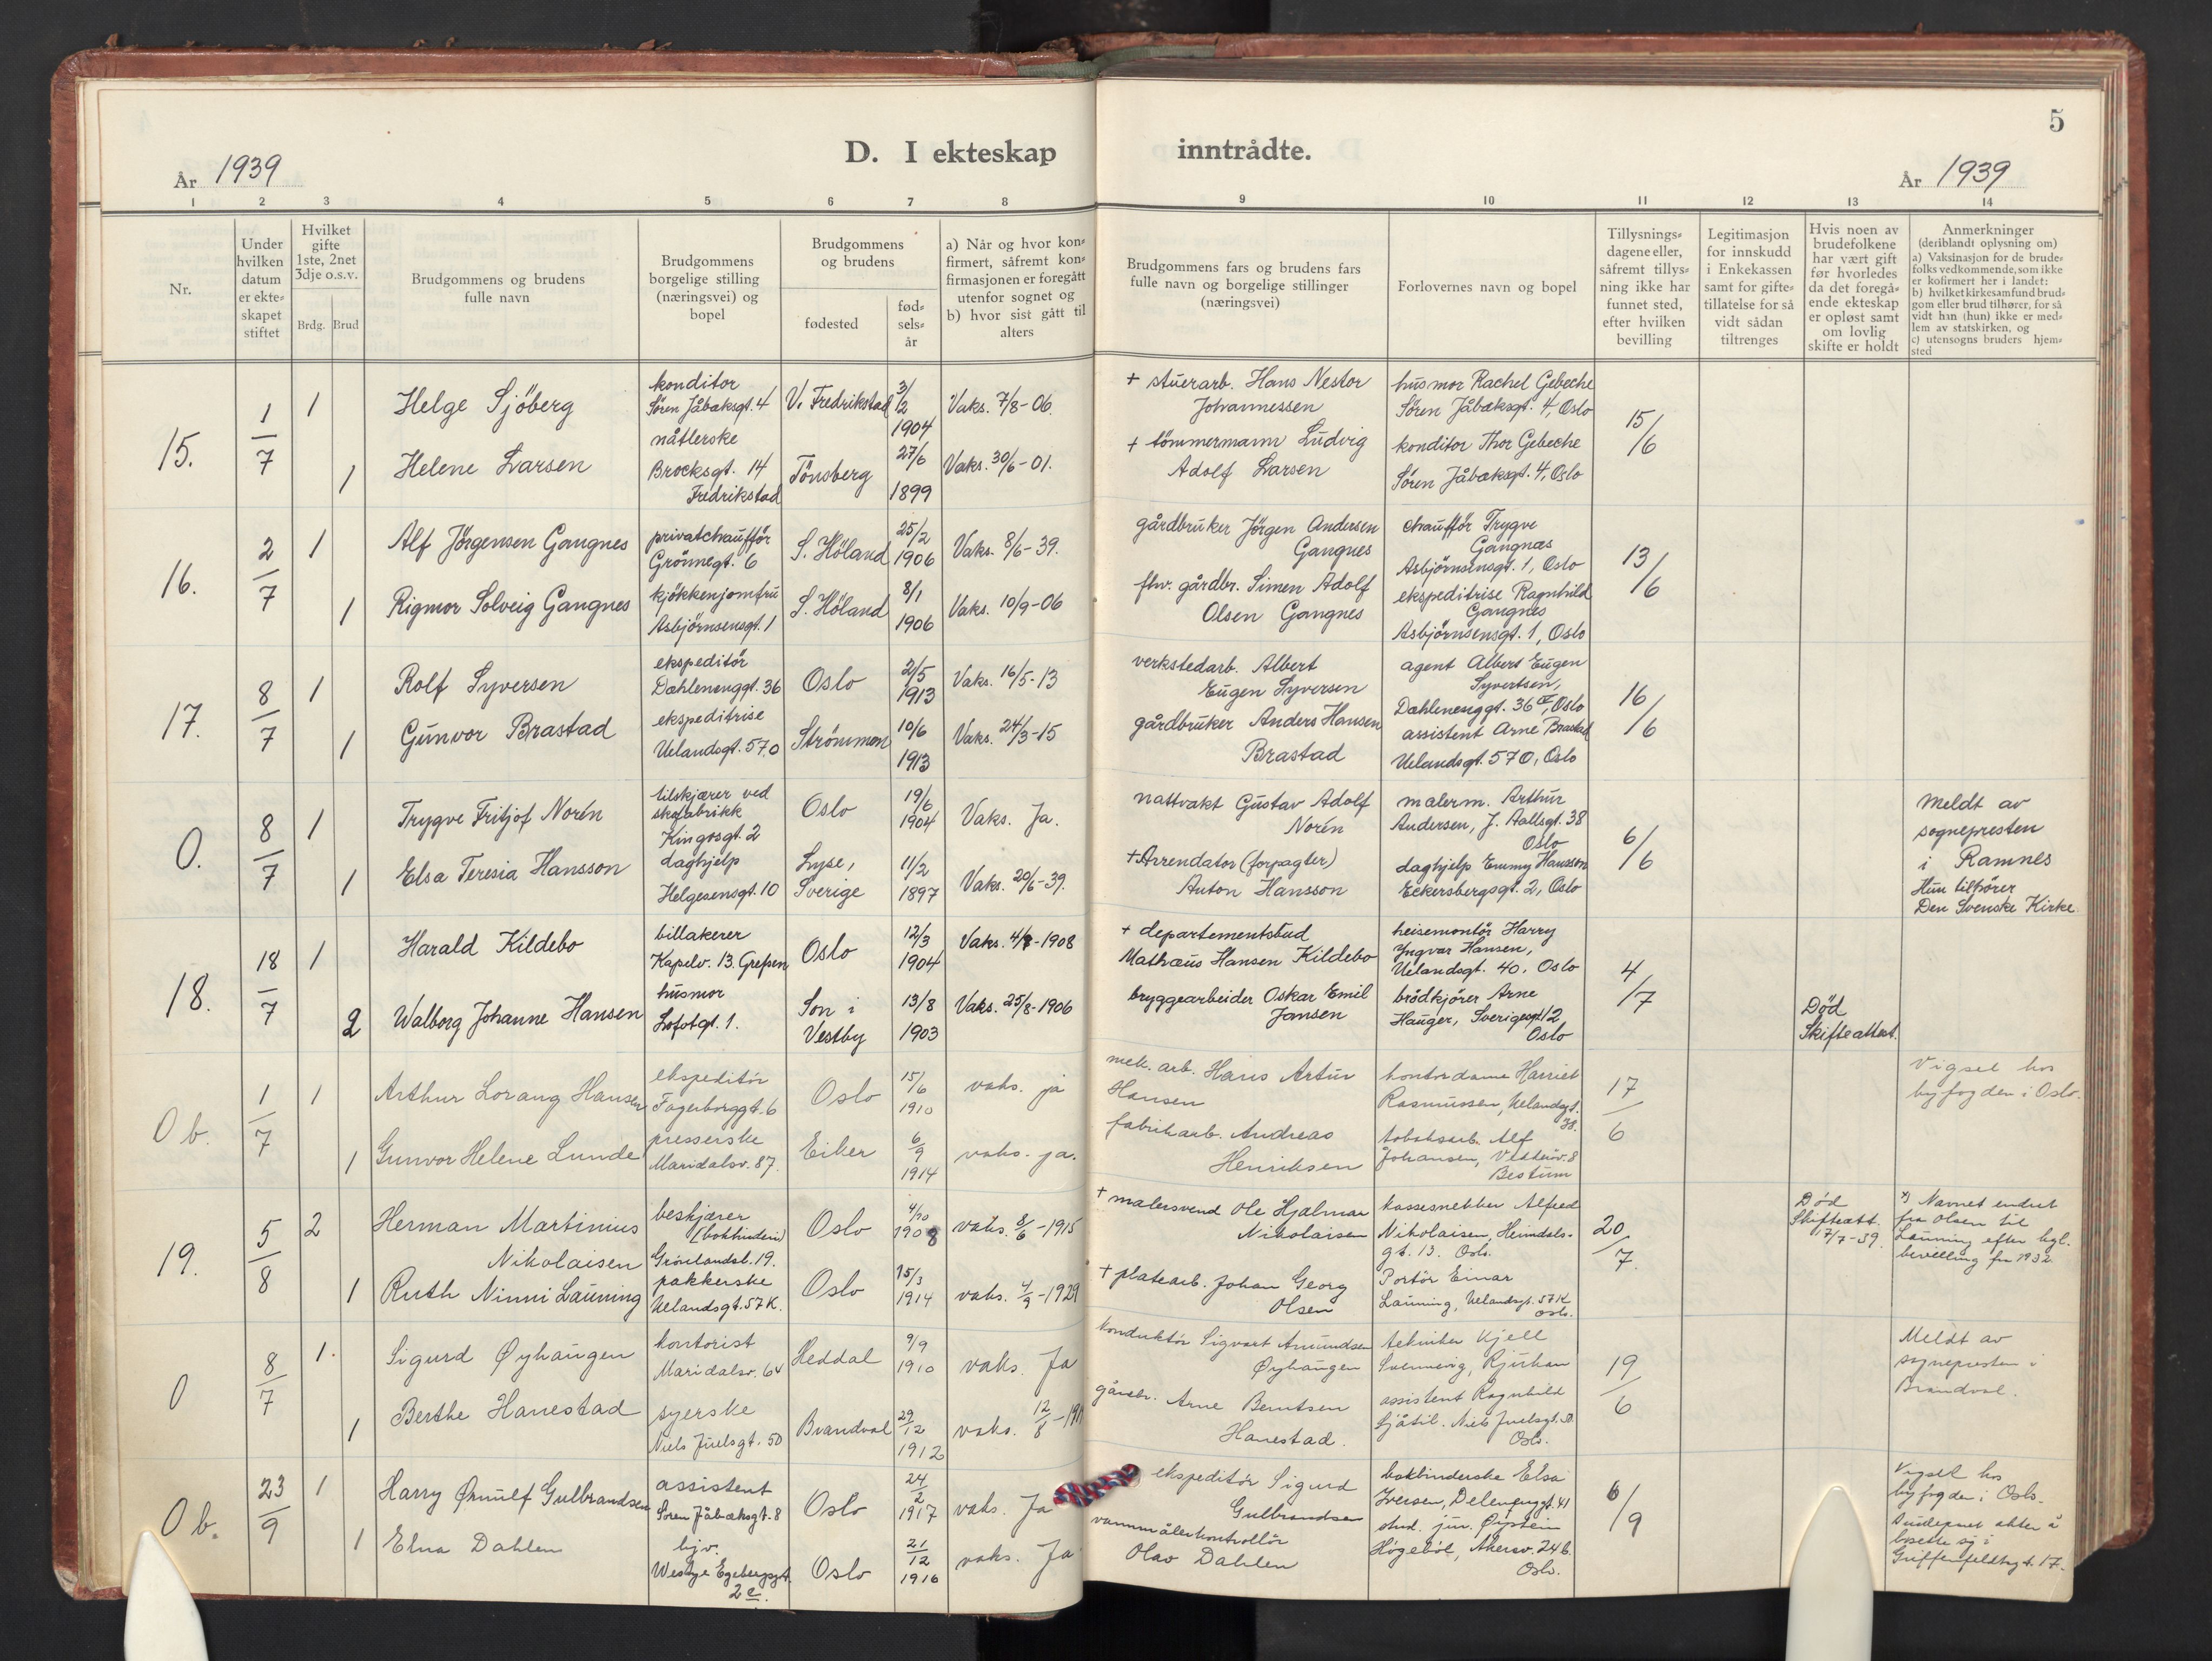 5
D. I ekteskap inntrådte.
År 1939
År 1939
1 2 3 4 5 6 7 8 9 10 11 12 13 14
Nr.
Under
hvilken
datum
er ekte-
skapet
stiftet
Hvilket
gifte
1ste, 2net
3dje o.s.v.
Brdg. Brud
Brudgommens og brudens
fulle navn
Brudgommens
borgelige stilling
(næringsvei) og
bopel
Brudgommens
og brudens
fødested
fød-
sels-
år
a) Når og hvor kon-
firmert, såfremt kon-
firmasjonen er foregått
utenfor sognet og
b) hvor sist gått til
alters
Brudgommens fars og brudens fars
fulle navn og borgelige stillinger
(næringsvei)
Forlovernes navn og bopel
Tillysnings-
dagene eller,
såfremt tillys-
ning ikke har
funnet sted,
efter hvilken
bevilling
Legitimasjon
for innskudd
i Enkekassen
samt for gifte-
tillatelse for så
vidt sådan
tiltrenges
Hvis noen av
brudefolkene
har vært gift
før hvorledes
da det foregå-
ende ekteskap
er opløst samt
om lovlig
skifte er holdt
Anmerkninger
(deriblandt oplysning om)
a) Vaksinasjon for de brude-
folks vedkommende, som ikke
er kofirmert her i landet;
b) hvilket kirkesamfund brud-
gom eller brud tilhører, for så
vidt han (hun) ikke er med-
lem av statskirken, og
c) utensogns bruders hjem-
sted
15.
1/7
1
Helge Sjöberg
konditor
Sören Jåbæksgt. 4
V. Fredrikstad
3/2
1904
Vaks. 7/8-06.
+ stuerarb. Hans Nestor
Johannessen
husmor Rachel Gebeche
Sören Jåbæksgt. 4, Oslo
15/6
1
Helene Larsen
nåtlerske
Brocksgt. 14
Fredrikstad
Tönsberg
27/6
1899
Vaks. 30/6-01.
+ tömmermann Ludvig
Adolf Larsen
konditor Thor Gebeche
Sören Jåbæksgt. 4, Oslo
16.
2/7
1
Alf Jörgensen Gangnes
privatchaufför
Grönnegt. 6
S. Höland
25/2
1906
Vaks. 8/6-39.
gårdbruker Jörgen Andersen
Gangnes
chaufför Trygve
Gangnæs
Asbjörnsensgt. 1, Oslo
13/6
1
Rigmor Solveig Gangnes
kjökkenjomfru
Asbjörnsensgt. 1
S. Höland
8/1
1906
Vaks. 10/9-06
fhv. gårdbr. Simen Adolf
Olsen Gangnes
ekspeditrise Ragnhild
Gangnes
Asbjörnsensgt. 1, Oslo
17.
8/7
1
Rolf Syversen
ekspeditör
Dæhlenenggt. 36
Oslo
2/5
1913
Vaks. 16/5-13
verkstedarb. Albert
Eugen Syversen
agent Albert Eugen
Syvertsen,
Dæhlenenggt. 36, Oslo
16/6
1
Gunvor Brastad
ekspeditrise
Uelandsgt. 57.0
Strömmen
10/6
1913
Vaks. 24/3-15
gårdbruker Anders Hansen
Brastad
assistent Arne Brastad
Uelandsgt. 57 0, Oslo
0.
8/7
1
Trygve Fritjof Norén
tilskjærer ved
skofabrikk
Kingosgt. 2
Oslo
19/6
1904
Vaks. Ja.
nattvakt Gustav Adolf
Norén
malerm. Arthur
Andersen, J. Aallsgt. 38
Oslo
6/6
Meldt av
sognepresten
i Ramnes
1
Elsa Teresia Hansson
daghjelp
Helgesensgt. 10
Lyse,
Sverige
11/2
1897
Vaks. 20/6-39.
+ Arrendator (forpagter)
Anton Hansson
daghjelp Emmy Hansson
Eckersbergsgt. 2, Oslo
Hun tilhører
Den Svenske Kirke.
18.
18/7
1
Harald Kildebo
billakerer
Kapelv. 13. Grefsen
Oslo
12/3
1904
Vaks. 4/8-1908
+ departementsbud
Mathæus Hansen Kildebo
heisemontör Harry
Yngvar Hansen,
Uelandsgt. 40, Oslo
4/7
2
Walborg Johanne Hansen
husmor
Lofotgt. 1.
Son i
Vestby
13/8
1903
Vaks. 25/8-1906
bryggearbeider Oskar Emil
Jansen
brödkjörer Arne
Hauger, Sverigesgt. 12
Oslo
Död
Skifteattest.
0 b.
1/7
1
Arthur Lorang Hansen
ekspeditör
Fagerborggt. 6
Oslo
15/6
1910
vaks. ja
mek. arb. Hans Artur
Hansen
kontordame Harriet
Rasmussen, Uelandsgt.
17/6
Vigsel hos
byfogden i Oslo.
1
Gunvor Helene Lunde
presserske
Maridalsv. 87.
Eiker
6/9
1914
vaks. ja.
fabrikarb. Andreas
Henriksen
tobaksarb. Alf
Johansen, 8
Bestum
19.
5/8
2
Herman Martinius
Nikolaisen
beskjærer
(bokbinderi)
Grönlandsl. 19.
Oslo
4/10
1908
vaks. 8/6-1915
+ malersvend Ole Hjalmar
Nikolaisen
kassesnekker Alfred
Nikolaisen, Heimdals-
gt. 13. Oslo.
20/7.
Död
Skifteatt.
17/7-39.
x) Navnet endret
fra Olsen til
Launing efter kgl.
bevilling fra 1932.
1
Ruth Ninni Launing
pakkerske
Uelandsgt. 57 K.
Oslo
15/3
1914
vaks. 4/9-1929
+ platearb. Johan Georg
Olsen
Portör Einar
Launing, Uelandsgt. 57 K
Oslo.
0
8/7
1.
Sigurd Øyhaugen
kontorist
Maridalsv. 64
Heddal
9/9
1910
vaks. Ja
konduktör Sigvart Amundsen
Øyhaugen
tekniker Kjell
Svennevig, Rjukan
19/6
Meldt av
sognepresten i
Brandval.
1
Berthe Hanestad
syerske
Niels Juelsgt. 50
Brandval
29/12
1912
vaks. 12/8-191
gårdbr. Arne Berntsen
Hanestad.
assistent Ragnhild
Niels Juelsgt. 50.
Oslo.
0 b.
23/9
1
Harry Ørnulf Gulbrandsen
assistent
Sören Jåbæksgt. 8
Oslo
24/2
1917
vaks. Ja
ekspeditör Sigurd
Gulbrandsen
bokbinderske Elsa
Iversen, Delenenggt. 41
6/9
Vigsel hos
byfogden i Oslo.
akter å
bosette sig i
Griffenfeldtsgt. 17.
1
Elna Dahlen
hjv.
Westye Egebergsgt.
2 c.
Oslo
21/12
1916
vaks. Ja
vannmålerkontrollör
Olav Dahlen
stud. jur. Øystein
Högeböl, Akersv. 24 b.
Oslo.